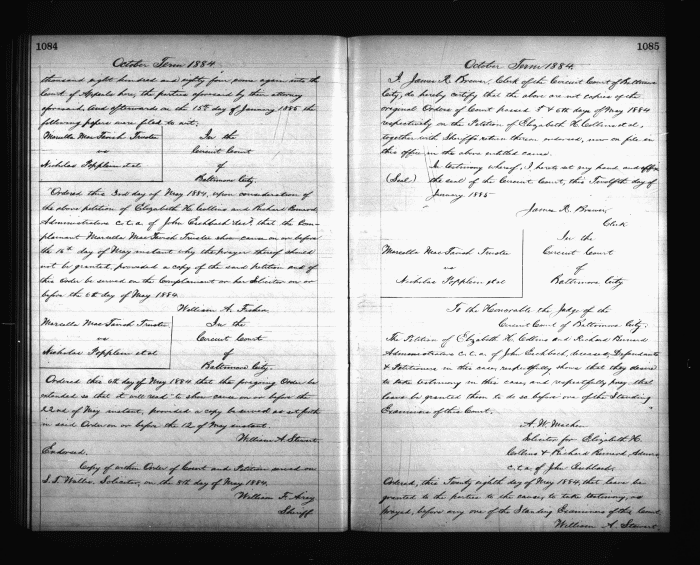 1084
October Term 1884
thousand eight hundred and eighty four, came again into the
Court of Appeals here, the parties aforesaid by their attorneys
aforesaid, And afterwards on the 15th day of January 1885 the
following papers were filed to wit:
Marcella MacTavish Trustee
vs
Nicholas Popplein et al
In the
Circuit Court
of
Baltimore City
Ordered this 3rd day of May 1884, upon consideration of
the above petition of Elizabeth H. Collins and Richard Bernard
Administrators c.t.a. of John Eschbach decd. that the Com-
plainant Marcella MacTavish Trustee show cause on or before
the 16th day of May instant why the prayer thereof should
not be granted, provided a copy of the said petition and of
this Order be served on the Complainant or her Solicitor on or
before the 6th day of May 1884.
William A. Fisher.
Marcella MacTavish Trustee
vs
Nicholas Popplein et al
In the
Circuit Court
of
Baltimore City.
Ordered this 6th day of May 1884 that the foregoing Order be
extended so that it will read "to show cause on or before the
22nd of May instant, provided a copy be served as set forth
in said Order on or before the 12 of May instant.
William A. Stewart
Endorsed.
Copy of within Order of Court and Petition served on
S. T. Wallis Solicitor, on the 8th day of May 1884.
William F. Airey
Sheriff
1085
October Term 1884.
I, James R. Brewer, Clerk of the Circuit Court of Baltimore
City, do hereby certify that the above are not copies of the
original Orders of Court passed 3rd & 6th days of May 1884
respectively on the Petition of Elizabeth H. Collins et al,
together with Sheriff's return thereon endorsed, now on file in
this office in the above entitled cause.
In testimony whereof, I hereto set my hand and affix
(Seal) the seal of the Circuit Court, this Twelfth day of
January 1885
James R. Brewer
Clerk
Marcella MacTavish Trustee
vs
Nicholas Popplein et al
In the
Circuit Court
of
Baltimore City
To the Honorable, the Judge of the
Circuit Court of Baltimore City:
The Petition of Elizabeth H. Collins and Richard Bernard
Administrators c.t.a. of John Eschbach, deceased, Defendants
& Petitioners in this case, respectfully shows that they desire
to take testimony in this case, and respectfully pray that
leave be granted them to do so before one of the Standing
Examiners of this Court.
A. W. Machen
Solicitor for Elizabeth H.
Collins & Richard Bernard, Admrs.
c.t.a. of John Eschbach.
Ordered, this Twenty eighth day of May 1884, that leave be
granted to the parties to the cause, to take testimony, as
prayed, before any one of the Standing Examiners of this Court
William A. Stewart.